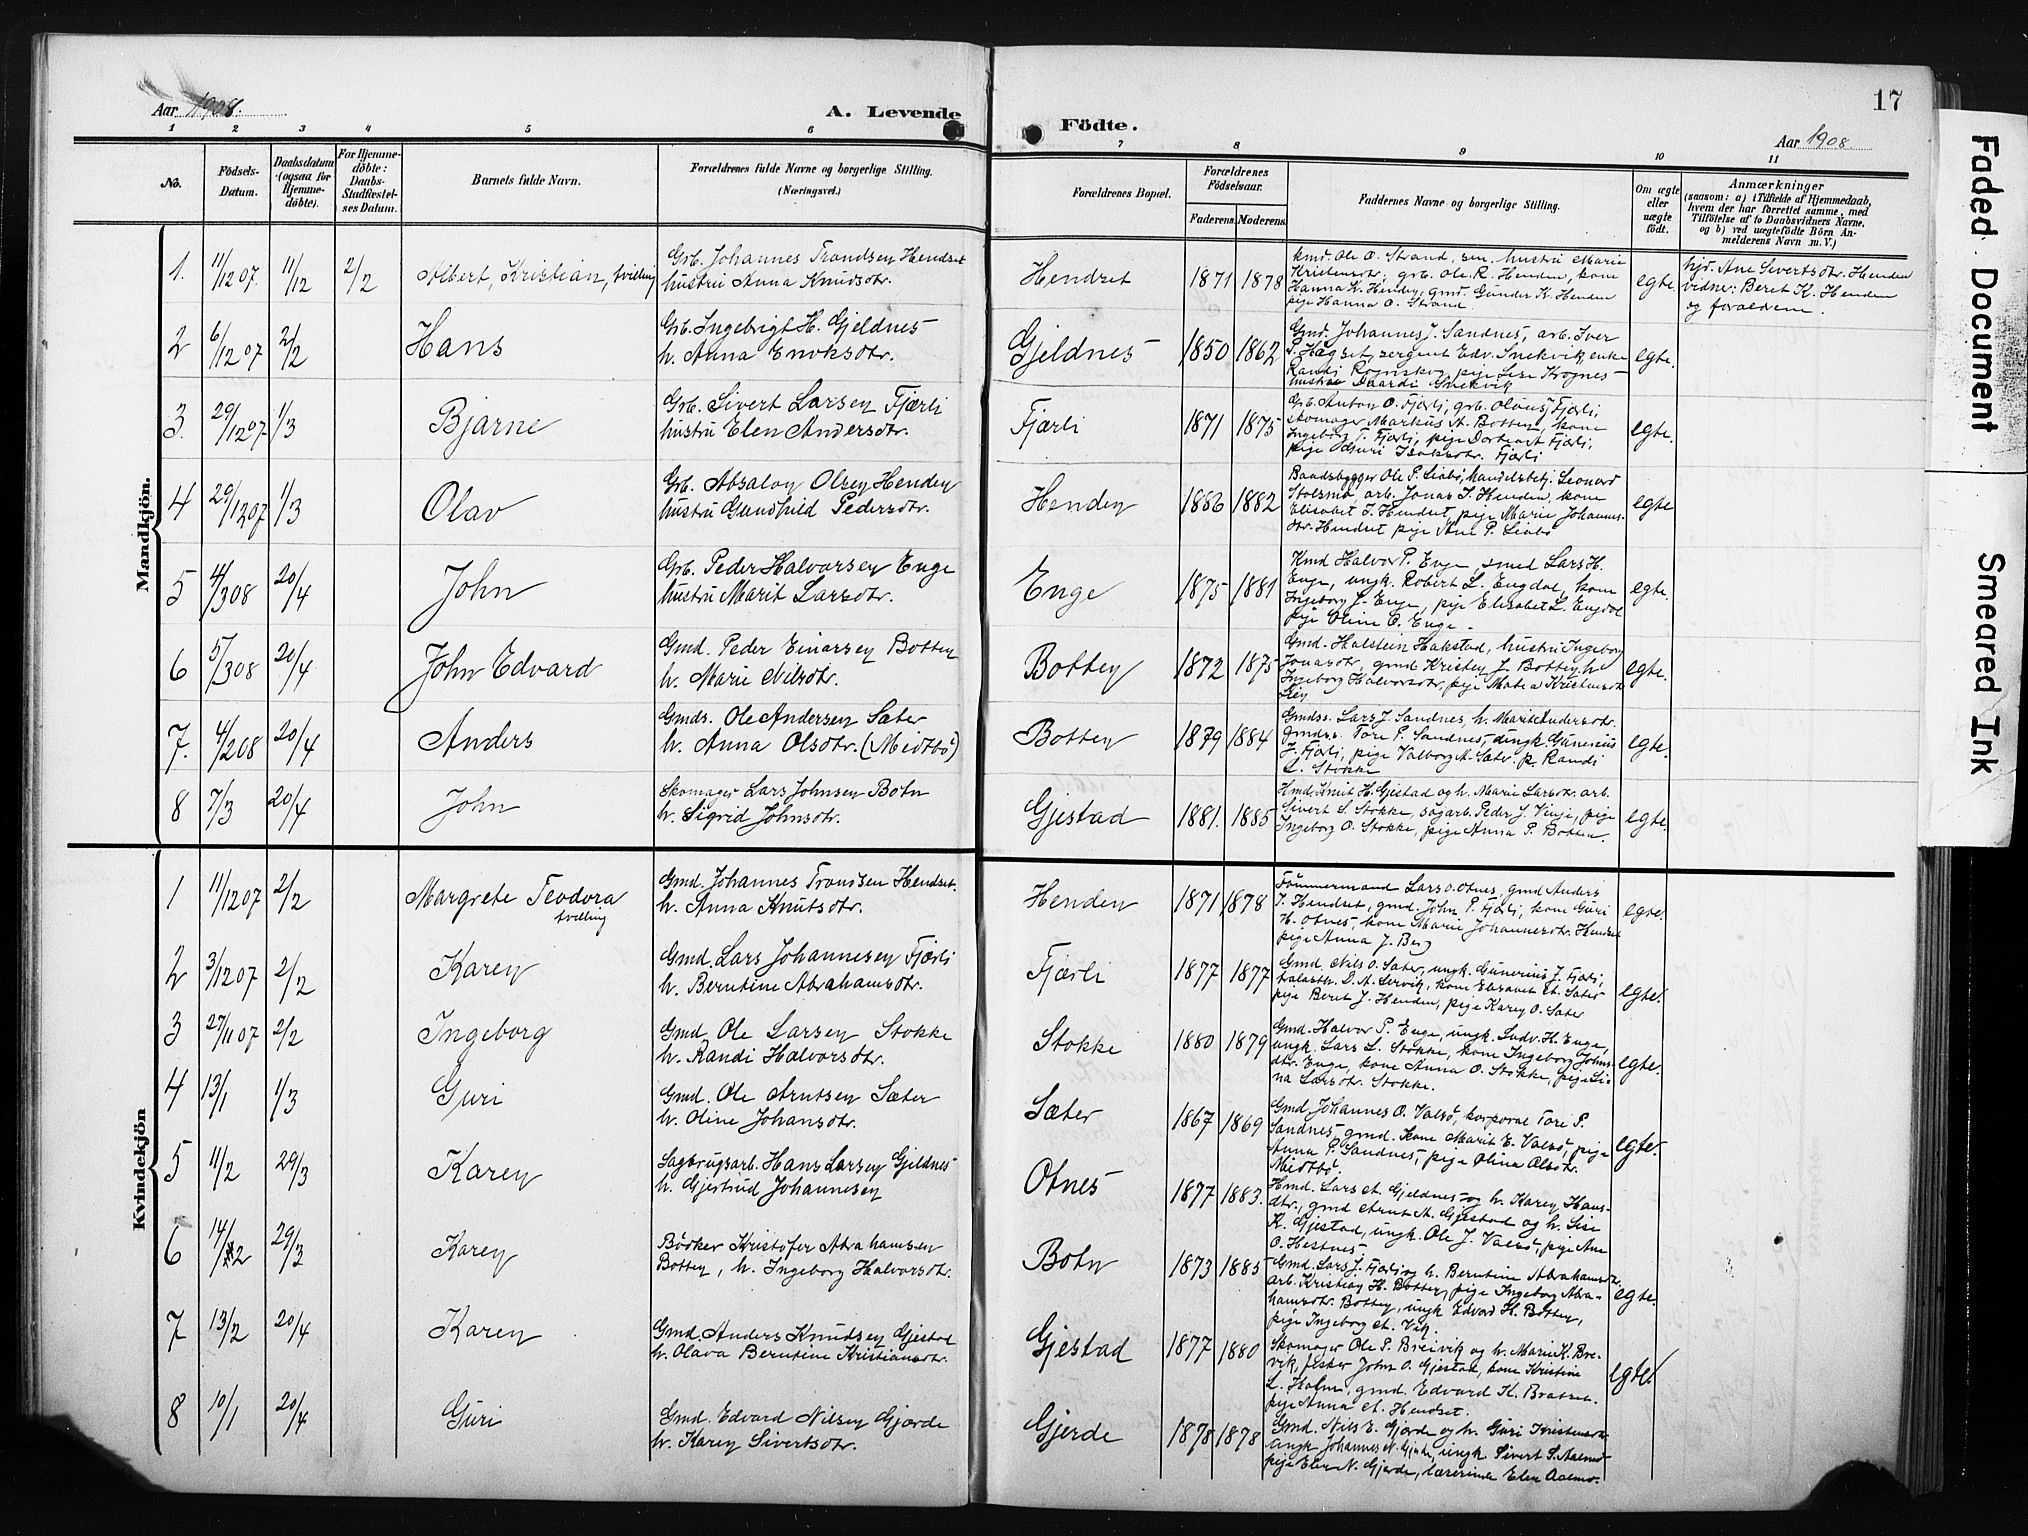 Aar 1908.
A. Levende
Födte.
17
Aar 1908.
1 2 3 4 5 6 7 8 9 10 11
No.
Födsels-Datum.
Daabsdatum (ogsaa for Hjemme-döbte).
For Hjemme-döbte: Daabs-Stadfæstel-ses Datum.
Barnets fulde Navn.
Forældrenes fulde Navne og borgerlige Stilling. (Næringsvei.)
Forældrenes Bopæl.
Forældrenes Födselsaar.
Faderens. Moderens.
Faddernes Navne og borgerlige Stilling.
Om ægte eller uægte födt.
Anmærkninger
(saasom: a) i Tilfælde af Hjemmedaab, hvem der har forrettet samme, med Tilföielse af to Daabsvidners Navne, og b) ved uægtefödte Börn An-melderens Navn m. V.)
Mandkjön.
1. 11/12 07. 11/12 2/2 Albert, Kristian, tvilling
Grb. Johannes Trondsen Hendset
hustru Anna Knudsdtr.
Hendset 1871 1878
Kmd. Ole O. Strand, sm. hustru Marie
Kristensdtr, grb. Ole R. Henden, kone
Hanna K. Henden, gmd. Gunder K. Henden
pige Hanna O. Strand
egte.
hjd. Ane Sivertsdtr. Henden
vidner: Beret K. Henden
og forældrene.
2 6/12 07 2/2 Hans
Grb. Ingebrigt H. Gjeldnes
h. Anna Enoksdtr.
Gjeldnes 1850 1862
Gmd. Johannes J. Sandnes, arb. Iver
Hægset, sergent Edv. Snekvik, enke
Randi Rognskog, pige Lise Krognes
egte.
3. 29/12 07 1/3 Bjarne
Grb. Sivert Larsen Fjærli
hustru Elen Andersdtr.
Fjærli 1871 1875
Grb. Anton O. Fjærli, grb. Fjærli,
skomager Markus A. Botten, kone
Ingeborg T. Fjærli, pige Fjærli,
pige Guri Isaksdtr. Fjærli
egte.
4 29/12 07 1/3 Olav
Grb. Absalon Olsen Henden
hustru Gundhild Pedersdtr.
Henden 1886 1882
Baadsbygger Ole P. Liabø, handelsbetj. Leonard
Stolsmo, arb. Jonas I. Henden, kone
Elisabet I. Hendset, pige Marie Johannes-
dtr. Hendset pige Ane P. Liabø
egte
5 4/3 08 20/4 John
Grb. Peder Halvorsen Enge
hustru Marit Larsdtr.
Enge 1875 1881
Kmd Halvor P. Enge, smed Lars H.
Enge, ungk. Robert L. Engdal, kone
Ingeborg J. Enge, pige Elisabet L. Engdal
pige Oline O. Enge.
egte.
6 5/3 08 20/4 John Edvard
Gmd. Peder Einarsen Botten
h. Marie Nilsdtr.
Botten 1872 1875
Gmd. Halstein Hakstad, hustru Ingeborg
Jonasdtr, gmd Kristen J. Botten, h.
Ingeborg Halvorsdtr, pige Kristensdtr
egte.
7. 4/2 08 20/4 Anders
Gmds. Ole Andersen Sæter
h. Anna Olsdtr. (Midtbö)
Botten 1879 1884
Gmdss. Lars J. Sandnes, h. Marit Andersdtr.
gmdss. Tore P. Sandnes, ungk. Gunerius
J. Fjærli, pige Valborg A. Sæter p. Randi
L. Stokke
egte.
8 7/3 20/4 John
Skomager Lars Johnsen Botn
h. Sigrid Johnsdtr.
Gjestad 1881. 1885
Hmd. Knut H. Gjestad og h. Marie Larsdtr. arb.
Sivert S. Stokke, sagarb. Peder J. Vinje, pige
Ingeborg O. Stokke, pige Anna P. Botten.
egte.
Kvindekjön
1 11/12 07 2/2 Margrete Teodora
tvilling
Gmd. Johannes Trondsen Hendset.
h. Anna Knutsdtr.
Henden 1871 1878
Tömmermand Lars O. Otnes, gmd Anders
T. Hendset, gmd. John P. Fjærli, kone Guri
H. Otnes, kone Marie Johannesdtr. Hendset
pige Anna J. Berg
egte.
2 3/12 07 2/2 Karen
Gmd. Lars Johannesen Fjærli
h. Berntine Abrahamsdtr.
Fjærli 1877 1877
Gmd. Nils O. Sæter, ungk. Gunerius J. Fjærli,
Lervik, kone Elisabet A. Sæter
pige Beret J. Henden, pige Karen O. Sæter
egte.
3 27/11 07 2/2 Ingeborg
Gmd. Ole Larsen Stokke
h. Randi Halvorsdtr.
Stokke 1880 1879
Gmd. Halvor P. Enge, ungk. Ludv. H. Enge,
ungk. Lars L. Stokke, kone Ingeborg Johns-
dtr. Enge, kone Anna O. Stokke, pige Li-
na Larsdtr. Stokke.
egte.
4 13/1 1/3 Guri
Gmd. Ole Arntsen Sæter
h. Oline Johansdtr.
Sæter 1867 1869
Gmd Johannes O. Valsö, korporal Tore P.
Sandnes, gmd. Kone Marit E. Valsö, pige
Anna P. Sandnes, pige Olina Olsdtr.
Midtbö.
egte.
5 11/2 29/3 Karen
Sagbrugsarb. Hans Larsen Gjeldnes
h. Gjertrud Johannesen
Otnes 1877 1883.
Hmd. Lars A. Gjeldnes og h. Karen Hans-
dtr., gmd Arnt A. Gjestad og h. Lise
K. Gjestad, ungk. Ole J. Valsö, pige Ane
O. Hestnes
6 14/2 29/3 Karen
Bödker Kristofer Abrahamsen
Botten, h. Ingeborg Halvorsdtr.
Botn 1873 1885
Gmd. Lars J. Fjærli og h. Berntine Abrahamsdtr.
arb. Kristian H. Botten, pige Ingeborg Abra-
hamsdtr. Botten, ungk Edvard K. Botten,
pige Ingeborg A. Vik.
egte.
7 13/2 20/4 Karen
Gmd. Anders Knudsen Gjestad
h. Olava Berntine Kristiansdtr.
Gjestad 1877 1880
Skomager Ole P. Breivik og h. Marie K. Bre-
vik, fisker John O. Gjestad, kone Kristine
L. Holm, gmd. Edvard K. Bratset.
pige Anna A. Hendset.
egte.
8 10/1 20/4 Guri
Gmd. Edvard Nilsen Gjerde
h. Karen Sivertsdtr.
Gjerde 1878 1878
Gmd. Nils E. Gjerde og h. Guri Kristensdtr
ungk Johannes N. Gjerde, ungk. Sivert S. Aasmo
pige Elen N. Gjerde, lærerinde Elen Aasmo.
Faded Document
Smeared Ink